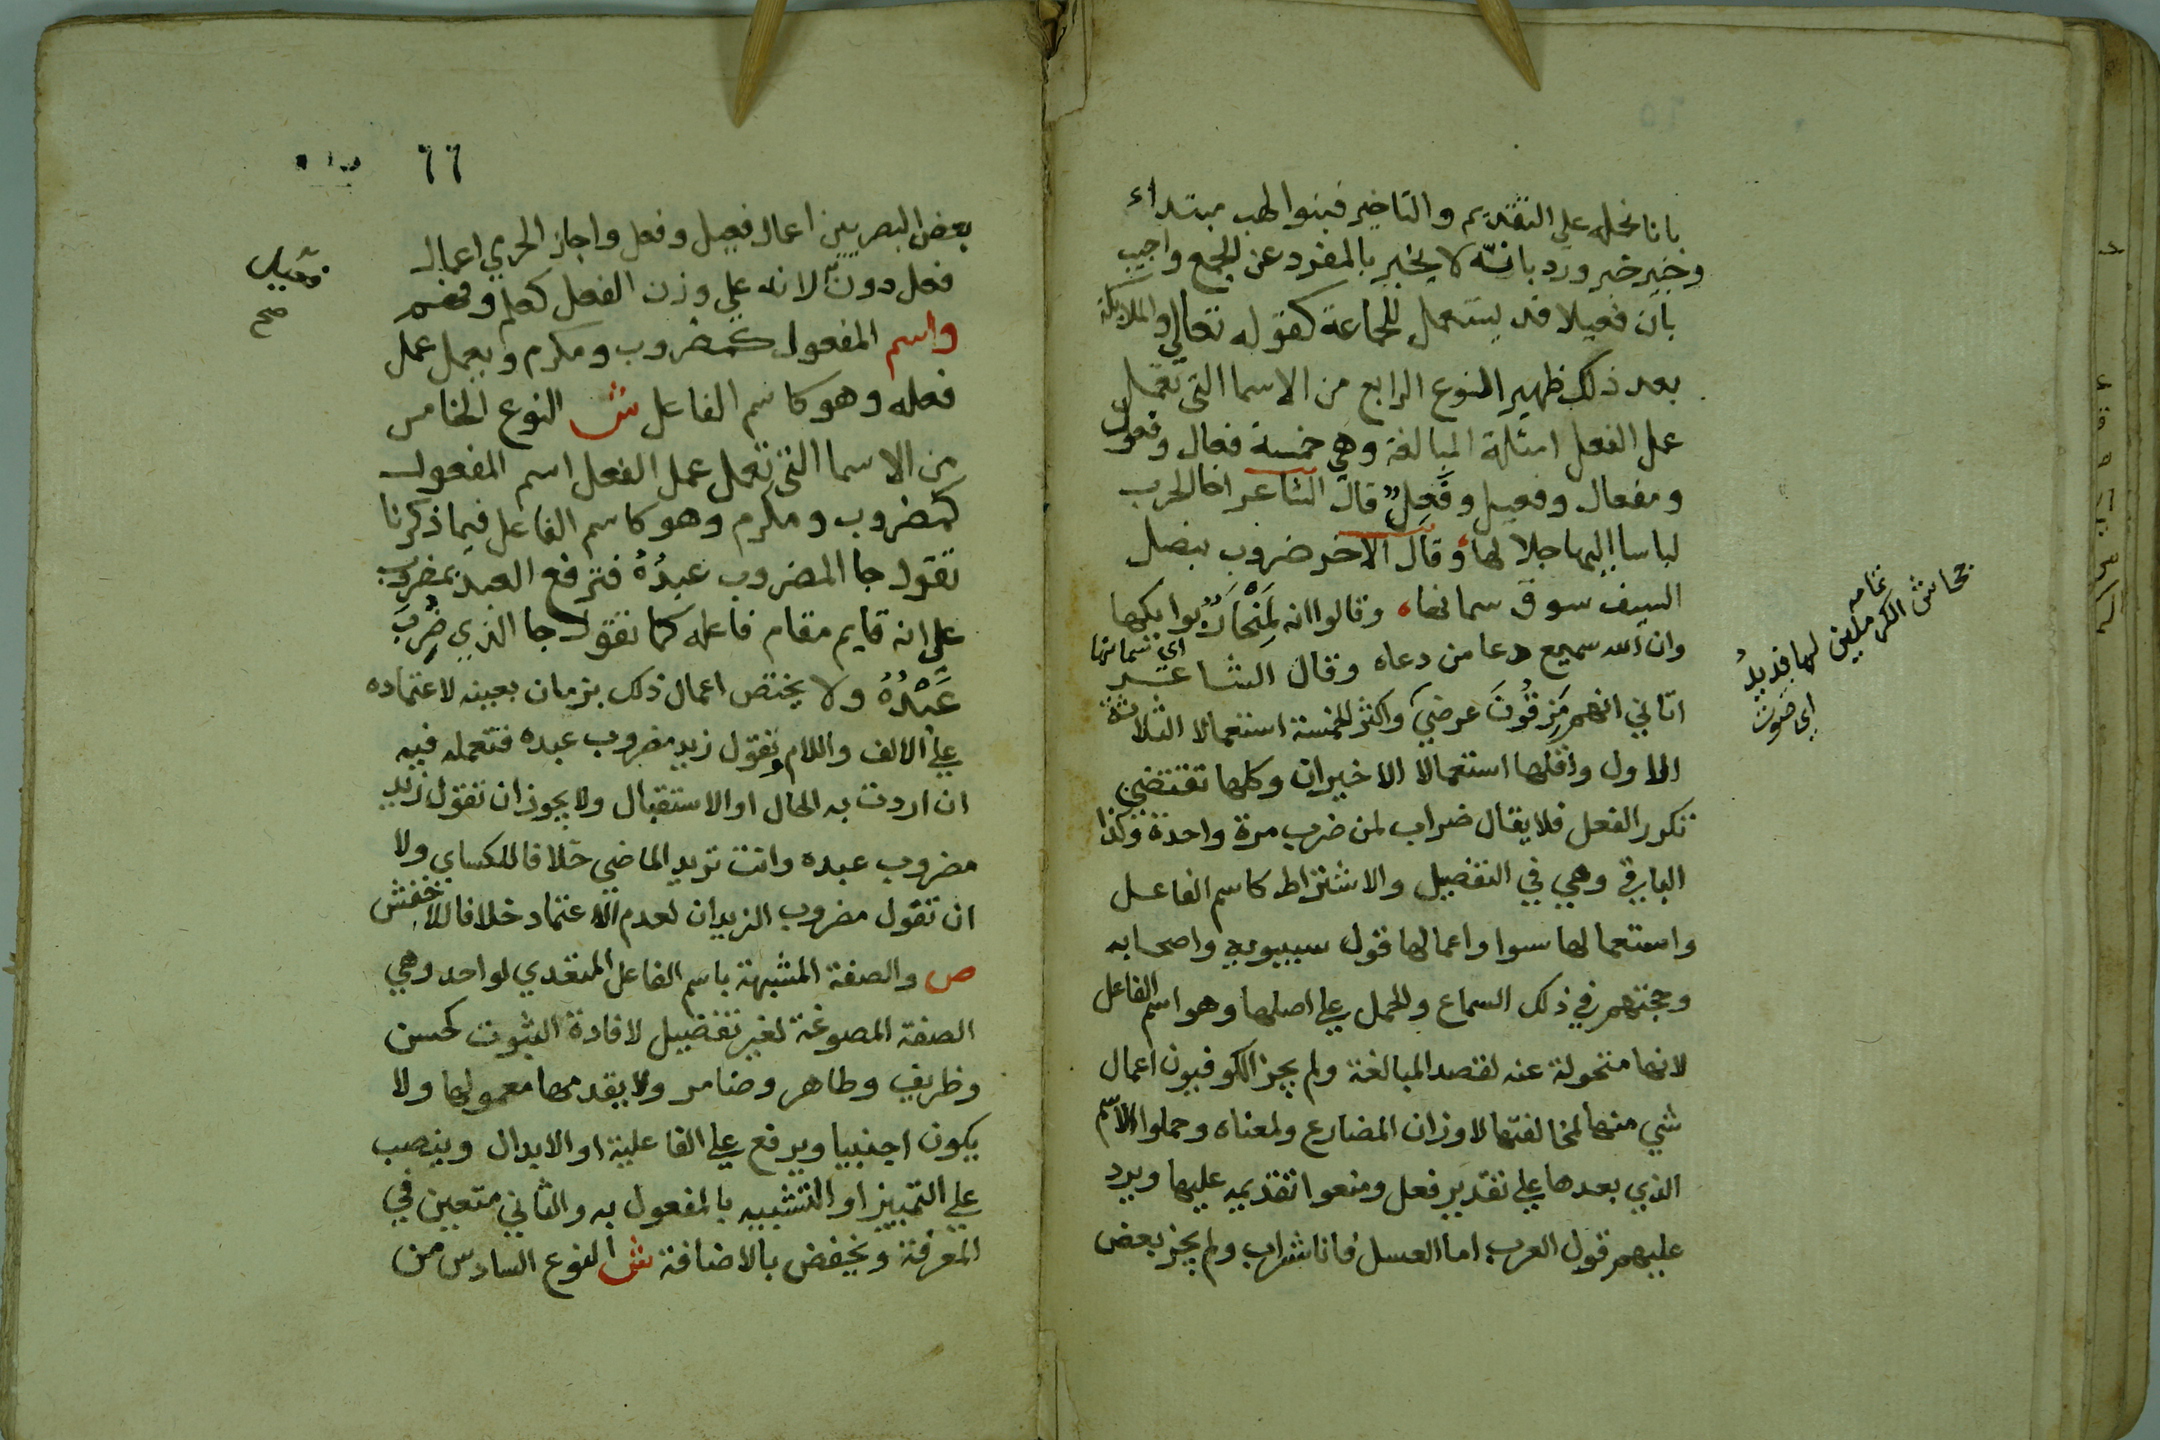 بانا نحمله على التقديم والتاخير فبنوا لهب مبتداء
وخبير خبر ورد بانه لا يخبر بالمفرد عن الجمع واجيب
بان فعيلا قد يستعمل للجماعة كقوله تعالى والملائكة
بعد ذلك ظهير النوع الرابع من الاسما التي تعمل
عمل الفعل امثلة المبالغة وهي خمسة فعال وفعول
ومفعال وفعيل وفعل قال الشاعر اخا الحرب
لباسا اليها جلالها وقال الاخر ضروب بنصل
السيف سوق سمانها وقالوا انه لمنحار بوايكها
اي سمانها
وان الله سميع دعا من دعاه وقال الشاعر
اتاني انهم مزقون عرضي واكثر الخمسة استعمالا الثلاثة
الاول واقلها استعمالا الاخيران وكلها تقتضي
تكرر الفعل فلا يقال ضراب لمن ضرب مرة واحدة وكذا
الباقي وهي في التفضيل والاشتراط كاسم الفاعل
واستعمالها سوا واعمالها قول سيبويه واصحابه
وحجتهم في ذلك السماع والحمل على اصلها وهو اسم الفاعل
لانها متحولة عنه لقصد المبالغة ولم يجز الكوفيون اعمال
شي منها لمخالفتها لاوزان المضارع ولمعناه وحملوا الاسم
الذي بعدها على تقدير فعل ومنعوا تقديمه عليها ويرد
عليهم قول العرب اما العسل فانا شراب ولم يجز بعض
تمامه
جحاش الكرملين لها فديد
اي صوت
٦٦
بعض البصريين اعمال فعيل وفعل واجاز الجرمي اعمال
فعل دون لانه على وزن الفعل كعلم وفهم
فعيل
صح
واسم المفعول كمضروب ومكرم ويعمل عمل
فعله وهو كاسم الفاعل ش النوع الخامس
من الاسما التي تعمل عمل الفعل اسم المفعول
كمضروب ومكرم وهو كاسم الفاعل فيما ذكرنا
تقول جا المضروب عبده فترفع العبد بمضروب
على انه قايم مقام فاعله كما تقول جا الذي ضرب
عبده ولا يختص اعمال ذلك بزمان بعينه لاعتماده
على الالف واللام وتقول زيد مضروب عبده فتعمله فيه
ان اردت به الحال او الاستقبال ولا يجوز ان تقول زيد
مضروب عبده وانت تريد الماضي خلافا للكساي ولا
ان تقول مضروب الزيدان لعدم الاعتماد خلافا للاخفش
ص والصفة المشبهة باسم الفاعل المتعدي لواحد وهي
الصفة المصوغة لغير تفضيل لافادة الثبوت كحسن
وظريف وطاهر وضامر ولا يتقدمها معمولها ولا
يكون اجنبيا ويرفع على الفاعلية او الابدال وينصب
على التمييز او التشبيه بالمفعول به والثاني متعين في
المعرفة ويخفض بالاضافة ش النوع السادس من